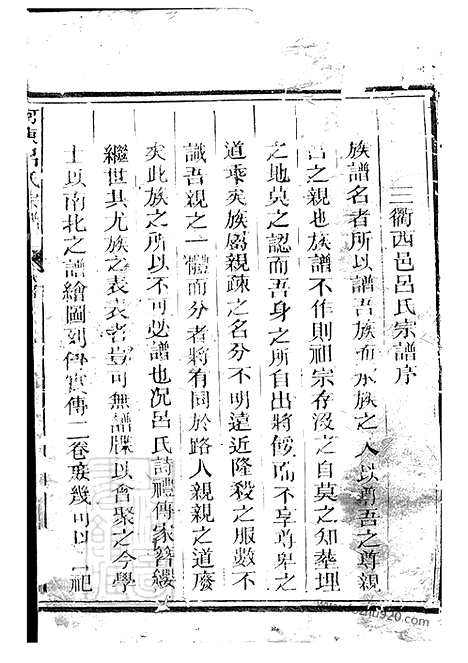 三衢西邑呂氏宗譜序
族譜名者所以譜吾族而水族之人以尊吾之尊親
吾之親也族譜不作則祖宗存沒之自莫之知塟埋
之地莫之認而吾身之所自出將餒而不享尊卑之
道乖矣族屬親疎之名分不明遠近隆殺之服數不
識吾親之一體而分者將有同於路人親親之道廢
矣此族之所以不可無譜也况呂氏詩禮傳家簪纓
繼世其尤族之表表者豈可無譜牒以會聚之今學
士以南北之譜繪圖列傳實傳二卷庶幾可以祀
呂氏宗譜